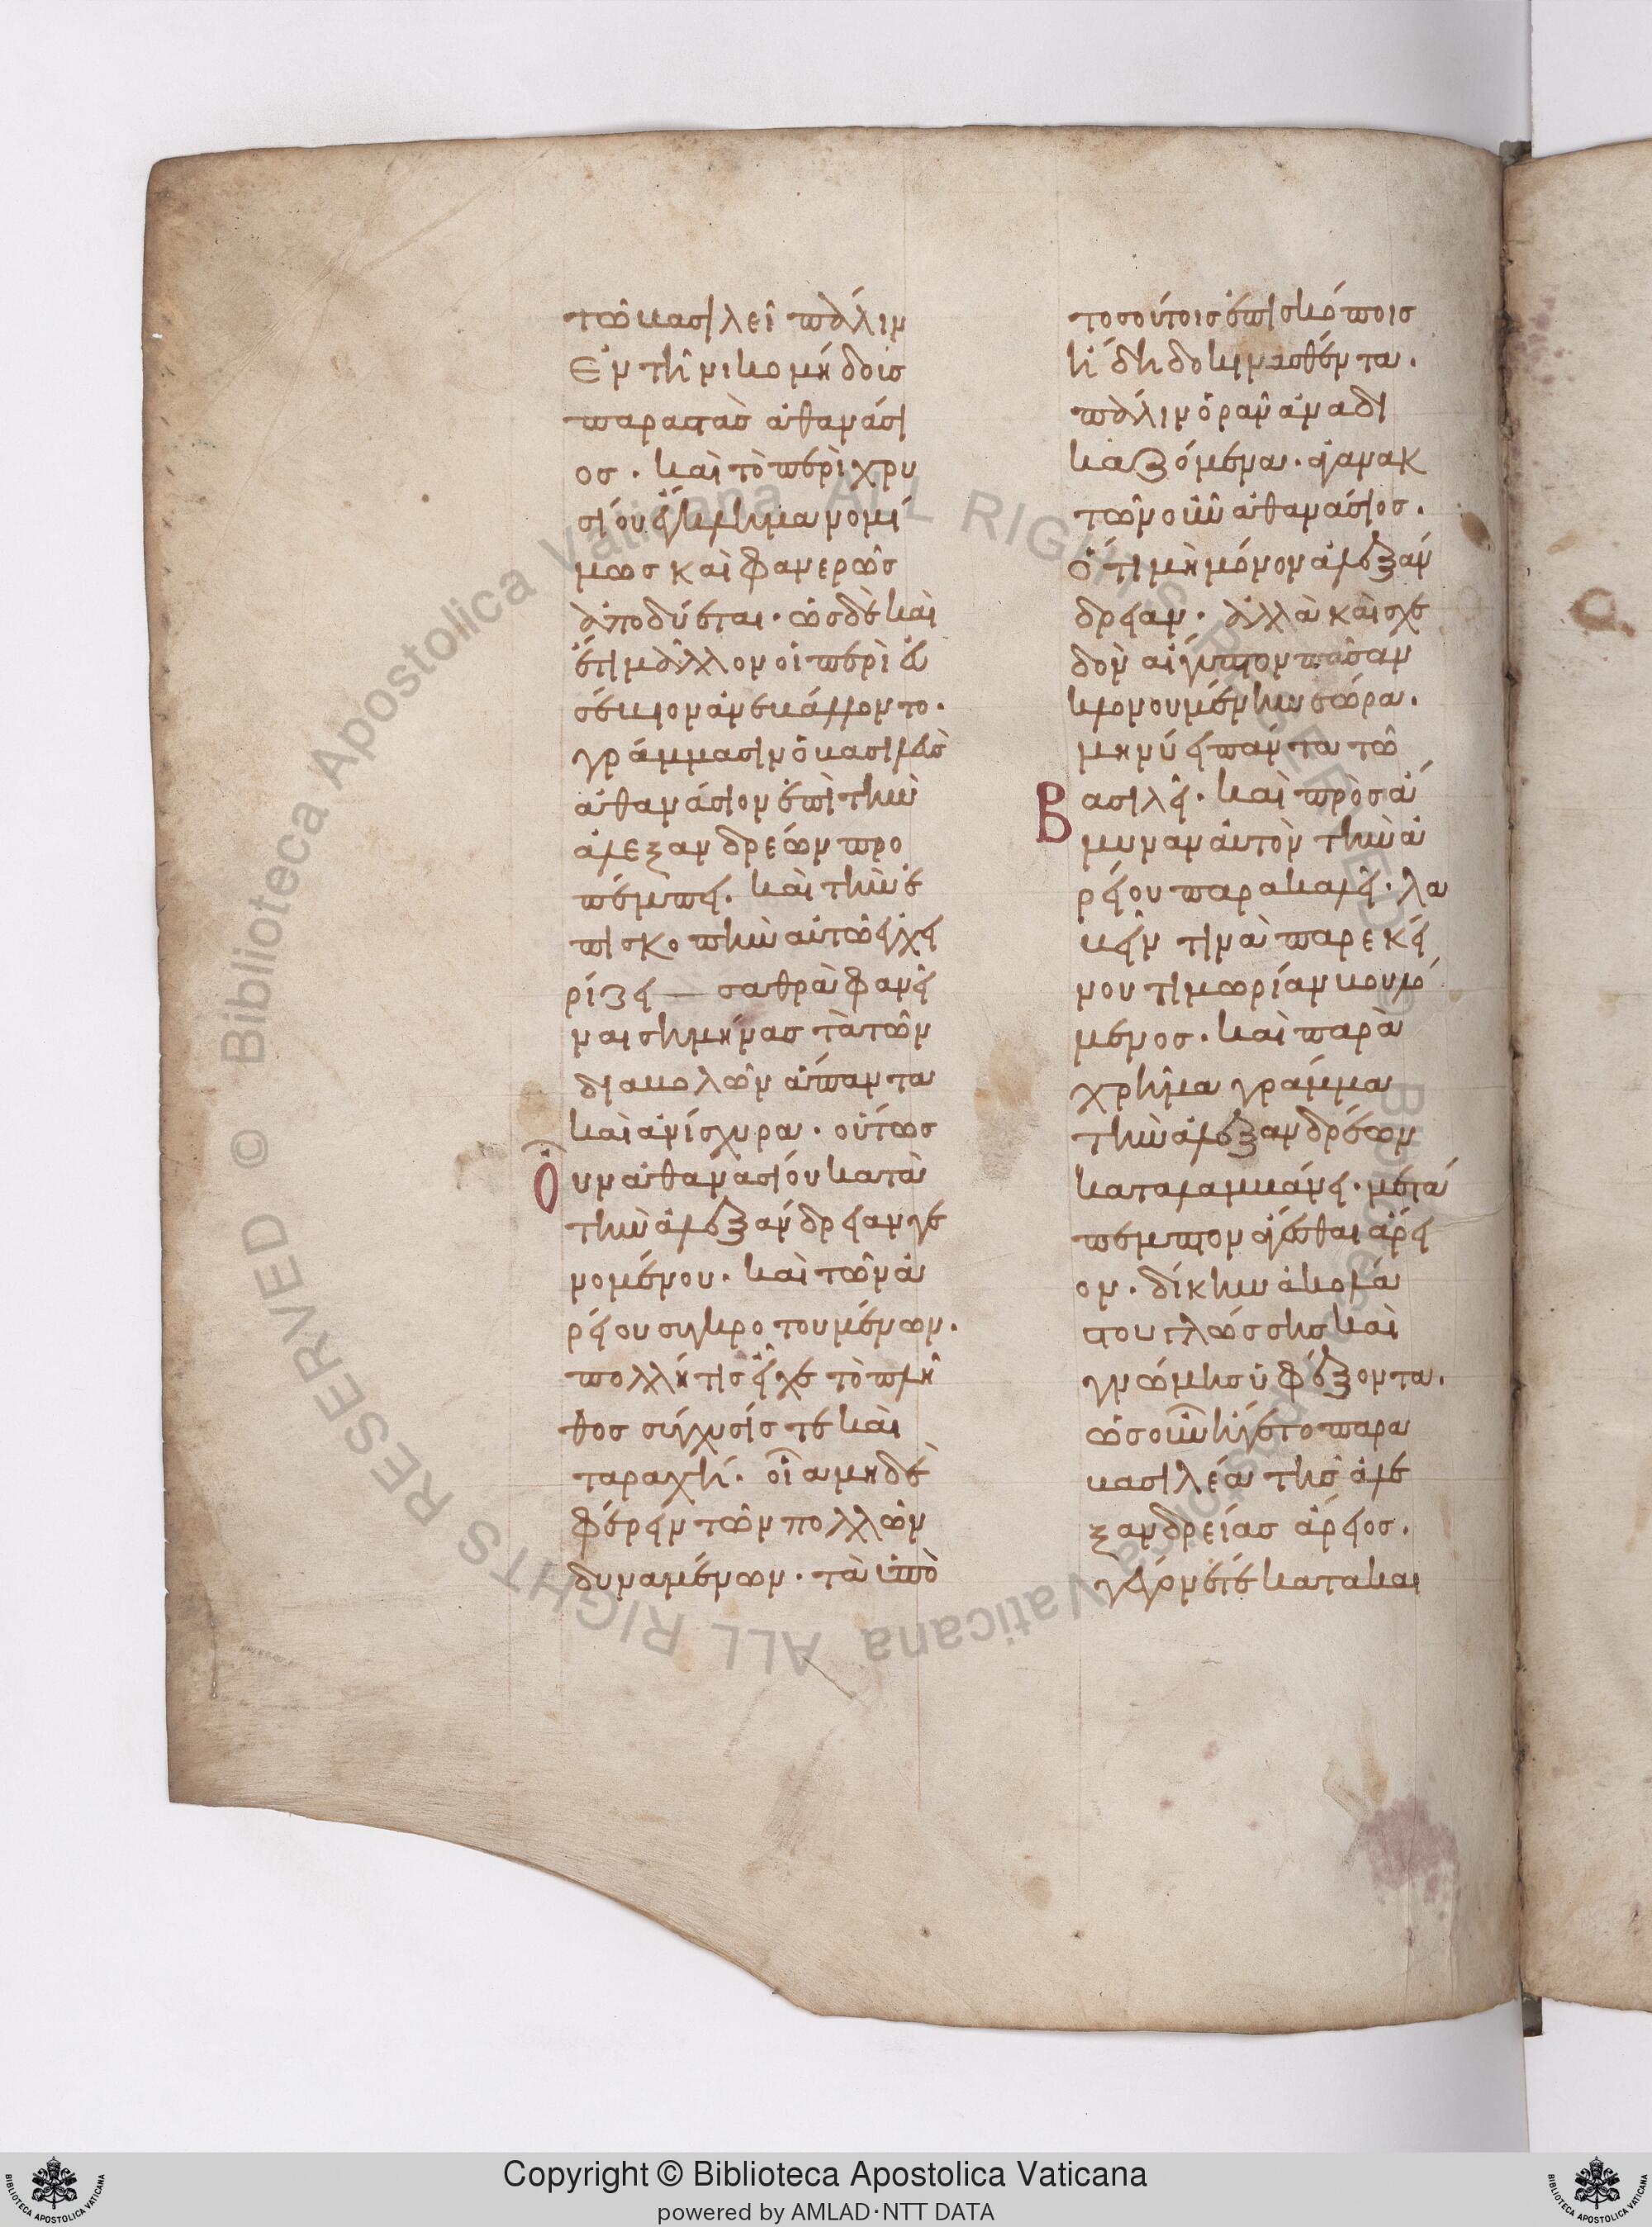 τῶ βασιλεῖ πάλιν
Ἐν τῆ νικομήδοισ
παραστὰσ ἀθανάσι
οσ. καὶ τὸ περὶ χρυ
σίου ἔγκλημα νομί
μωσ καὶ φανερῶσ
ἀποδύεται. ὡσ δὲ καὶ
ἔτι μᾶλλον οἱ περὶ ἐυ
σέβιον ἀνεβάλλοντο.
γράμμασιν ὁ βασιλεὺσ
ἀθανάσιον ἐπὶ τὴν
ἀλεξανδρέων προ
πέμπει. καὶ τὴν ἐ
πισκοπὴν αὐτῶ ἐγχει
ρίζει — σαθρὰ φανεῖ
ναι σημήνασ τὰ τῶν
διαβολῶν ἅπαντα
καὶ ἀνίσχυρα. οὕτωσ
Ὀυν ἀθανασίου κατὰ
τὴν ἀλεξάνδρειαν γε
νομένου. καὶ τῶν ἀ
ρείου συγκροτουμένων.
πολλή τισ εἶχε τὸ πλῆ
θοσ σύγχυσίσ τε καὶ
ταραχή. οἷα μηδὲ
φέρειν τῶν πολλῶν
δυναμένων. τὰ ὑπὸ
τοσούτοισ ἐπισκόποισ
ἤδη δοκιμασθέντα.
πάλιν ὁρᾶν ἀναδι
καζόμενα. ἀγανακ
τῶν οὖν ἀθανάσιοσ.
ὅτι μὴ μόνον ἀλεξάν
δρειαν. ἀλλὰ καὶ σχε
δὸν αἴγυπτον πᾶσαν
κλονουμένην ἑώρα.
μηνύει πάντα τῶ
Βασιλεῖ. καὶ πρὸσ ἄ
μυναν ἀυτὸν τὴν ἀ
ρείου παρακαλεῖ. λα
βεῖν τινὰ παρ ἐκεί
νου τιμωρίαν βουλό
μενοσ. καὶ παρὰ
χρῆμα γράμμα
τὴν ἀλεξανδρέων
καταλαμβάνει. μετά
πεμπτον ἄγεσθαι ἄρει
ον. δίκην ἀκολά
στου γλώσσησ καὶ
γνώμησ ὑφέξοντα.
ὡσ οὖν ἤγετο παρὰ
βασιλέα τῆσ ἀλε
ξανδρείασ ἄρειοσ.
γέγονέ τε κατὰ καὶ